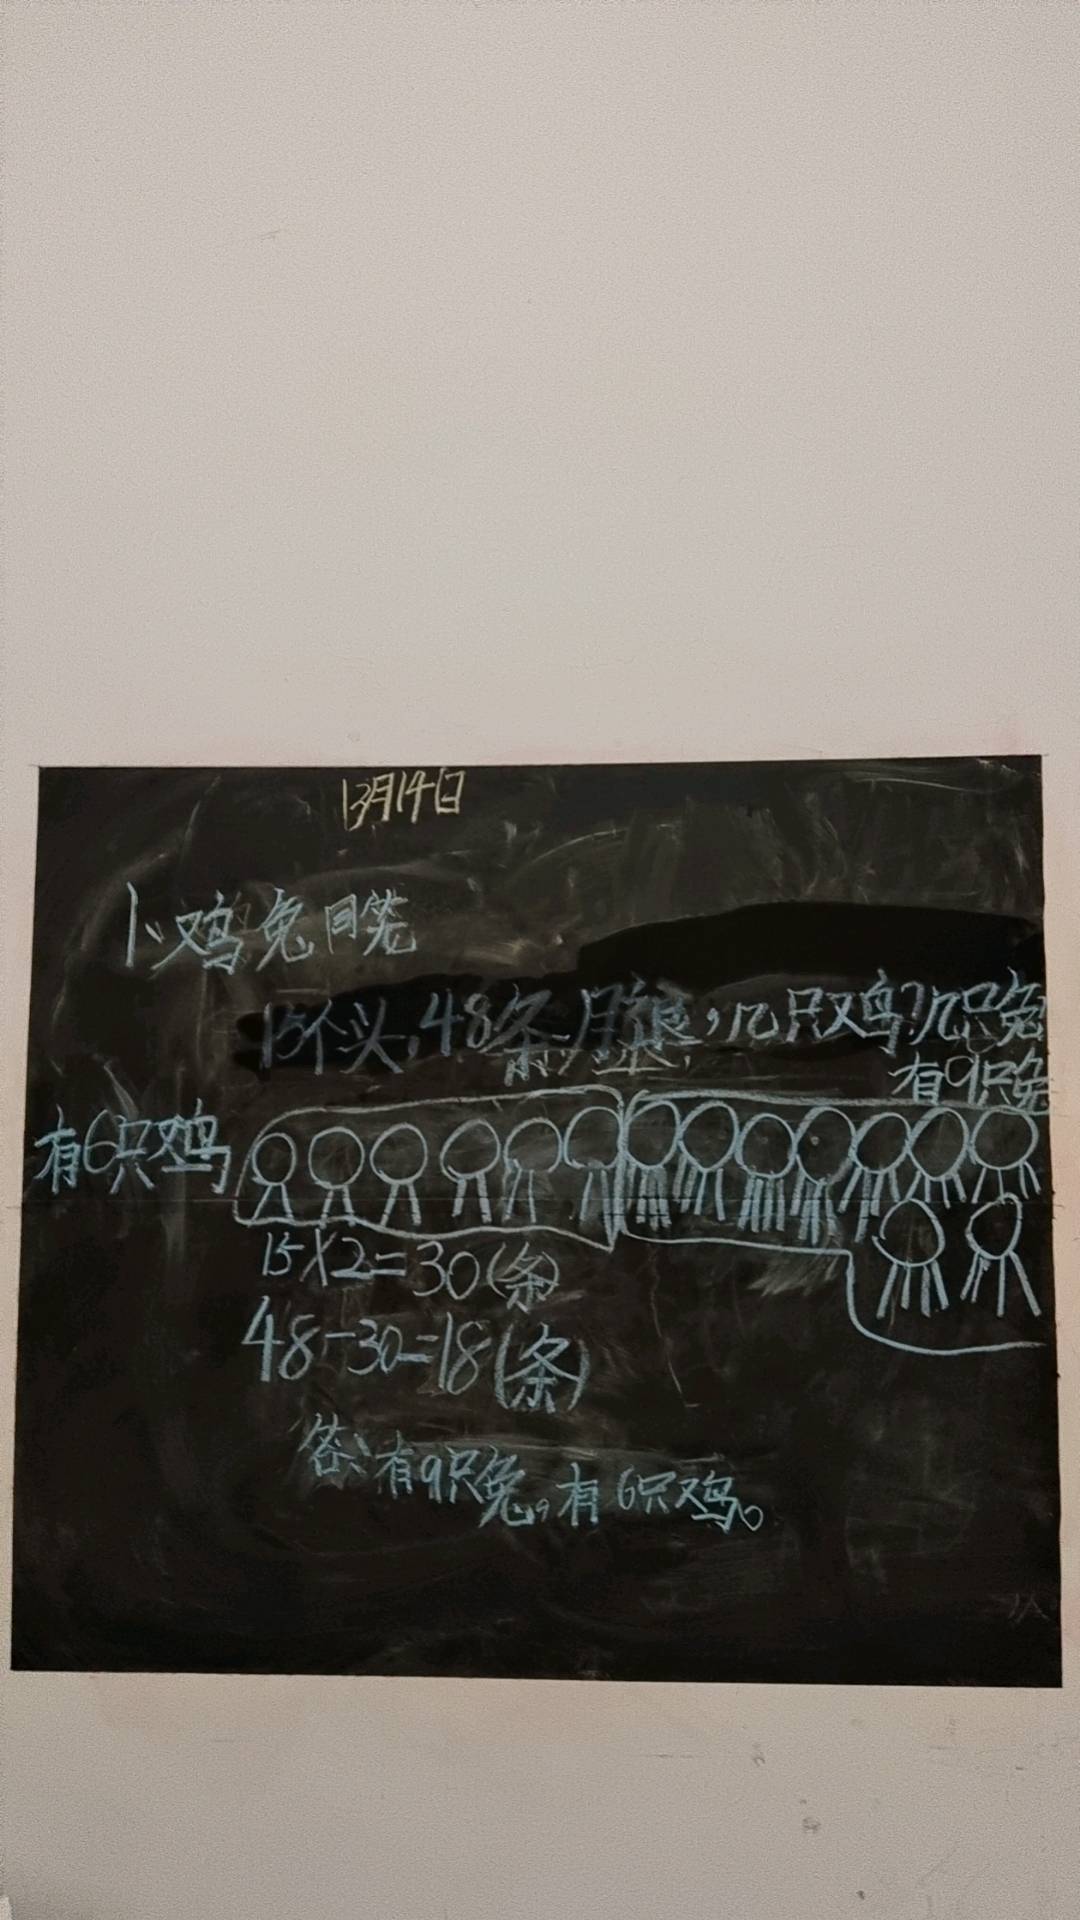 13月14日
1、鸡兔同笼
15个头,48条腿,几只鸡?几只兔
有9只兔
有6只鸡
15X2=30(条)
48-30=18(条)
答:有9只兔。有6只鸡。